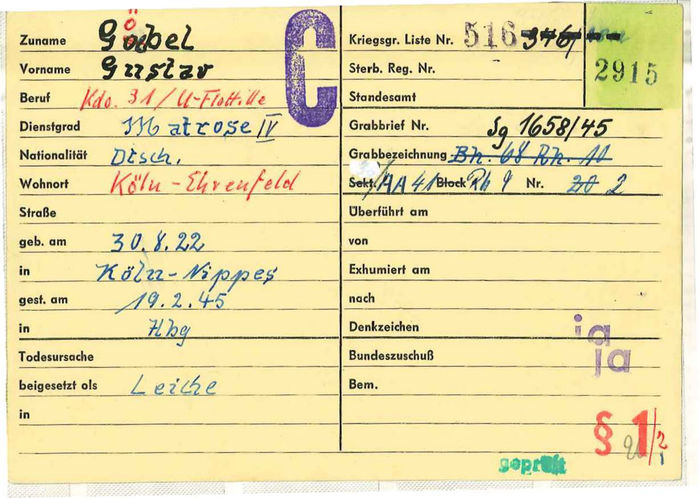 Zuname Göbel
Vorname Gustav
Beruf Kdo. 31/U-Flottille
Dienstgrad Matrose IV
Nationalität Dtsch.
Wohnort Köln-Ehrenfeld
Straße
geb. am 30.8.22
in Köln-Nippes
gest. am 19.2.45
in Hbg
Todesursache
beigesetzt als Leiche
in
C
Kriegsgr. Liste Nr. 516
2915
Sterb. Reg. Nr.
Standesamt
Grabbrief Nr. Sg 1658/45
Grabbezeichnung Bk. 68 Rh. 11
Sekt. AA 41 Block Rh 9 Nr. 20 2
Überführt am
von
Exhumiert am
nach
Denkzeichen ja
Bundeszuschuß ja
Bem.
§ 1/2
geprüft